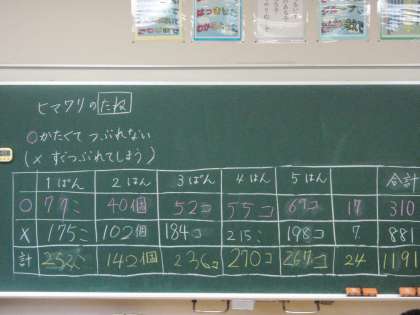 ヒマワリのたね
○かたくてつぶれない
(×すぐつぶれてしまう)
1ぱん 2はん 3ぱん 4はん 5はん 合計
○ 77こ 40個 52コ 55コ 69コ 17 310
× 175こ 102個 184コ 215こ 198コ 7 881
計 252こ 142個 236コ 270コ 267コ 24 1191